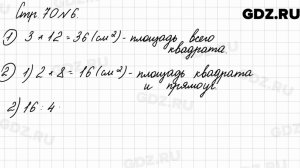 Стр 70 №6.
GDZ.RU
1 3 × 12 = 36 (см²) - площадь всего
квадрата
2 1) 2 × 8 = 16 (см²) - площадь квадрата
и прямоуг.
2) 16 : 4
GDZ.RU